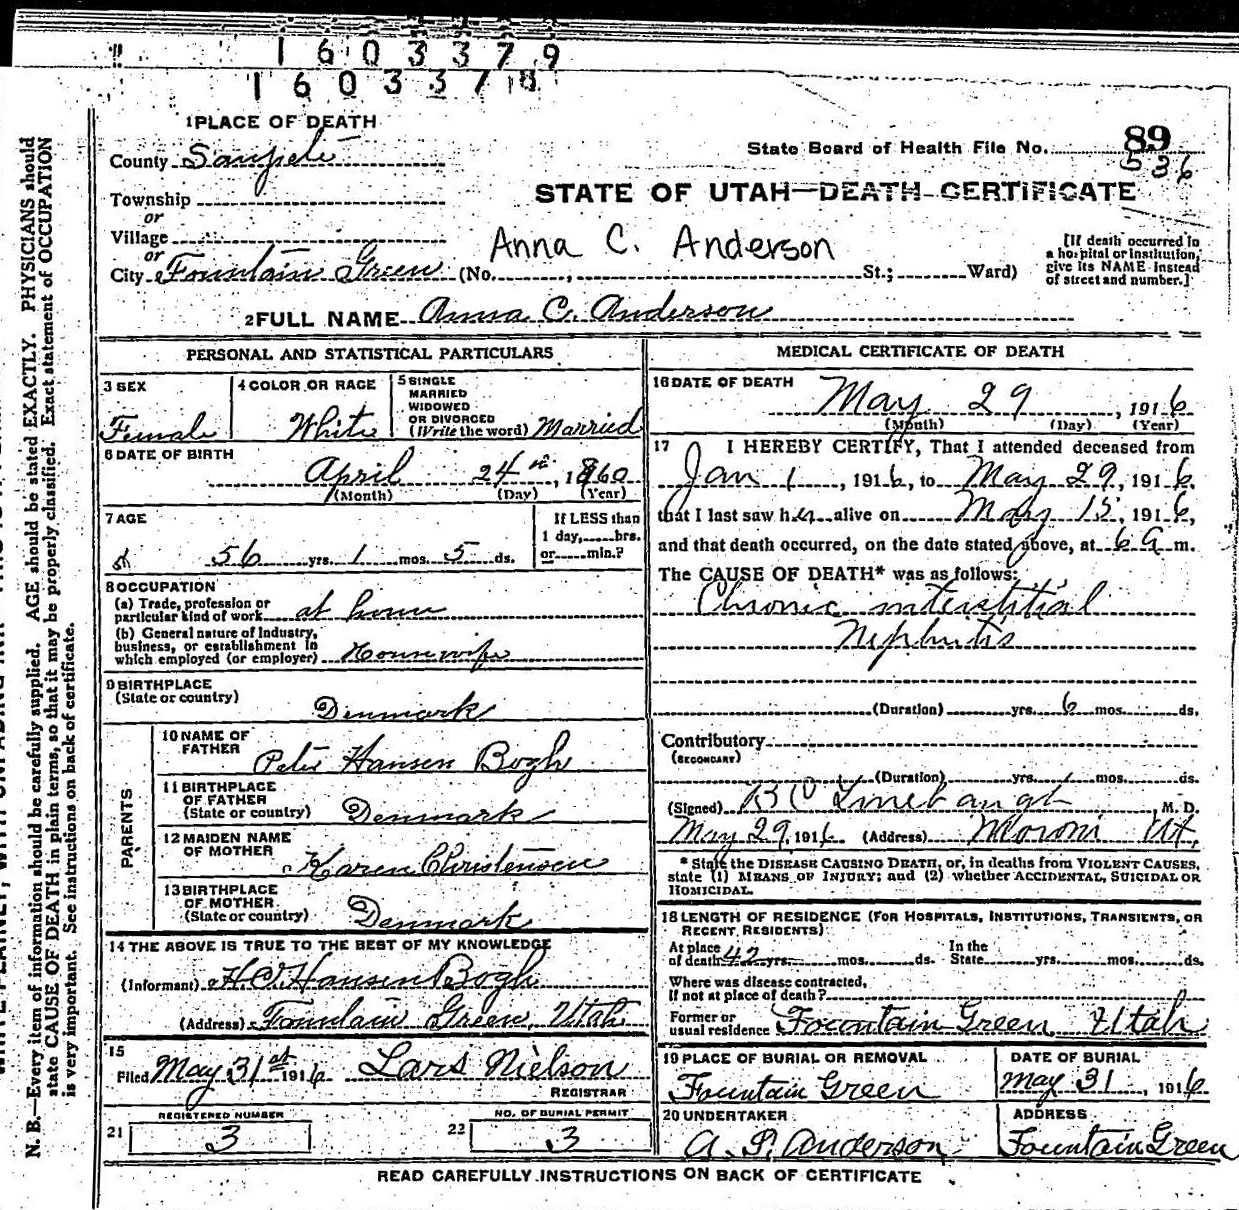 1603379
1603378
1 PLACE OF DEATH
County Sanpete
State Board of Health File No. 89
536
Township
STATE OF UTAH—DEATH CERTIFICATE
or
Village
or
Anna C. Anderson
City Fountain Green (No. , St.; Ward)
[If death occurred in
a hospital or institution,
give its NAME instead
of street and number.]
2 FULL NAME Anna C. Anderson
PERSONAL AND STATISTICAL PARTICULARS
3 SEX
Female
4 COLOR OR RACE
White
5 SINGLE
MARRIED
WIDOWED
OR DIVORCED
(Write the word) Married
6 DATE OF BIRTH
April 24th, 1860
(Month) (Day) (Year)
7 AGE
56 yrs. 1 mos. 5 ds.
If LESS than
1 day, hrs.
or min.?
8 OCCUPATION
(a) Trade, profession or
particular kind of work at home
(b) General nature of Industry,
business, or establishment in
which employed (or employer) Housewife
9 BIRTHPLACE
(State or country)
Denmark
PARENTS
10 NAME OF
FATHER
Peter Hansen Bogh
11 BIRTHPLACE
OF FATHER
(State or country) Denmark
12 MAIDEN NAME
OF MOTHER
Karen Christensen
13 BIRTHPLACE
OF MOTHER
(State or country) Denmark
14 THE ABOVE IS TRUE TO THE BEST OF MY KNOWLEDGE
(Informant) Hansen Bogh
(Address) Fountain Green, Utah
15
Filed May 31st 1916 Lars Nielson
REGISTRAR
REGISTERED NUMBER
21 3
NO. OF BURIAL PERMIT
22 3
MEDICAL CERTIFICATE OF DEATH
16 DATE OF DEATH
May 29, 1916
(Month) (Day) (Year)
17 I HEREBY CERTIFY, That I attended deceased from
Jan 1, 1916, to May 29, 1916,
that I last saw her alive on May 15, 1916,
and that death occurred, on the date stated above, at 6 a m.
The CAUSE OF DEATH* was as follows:
Chronic interstitial
Nephritis
(Duration) yrs. 6 mos. ds.
Contributory
(SECONDARY)
(Duration) yrs. mos. ds.
(Signed) Linebaugh, M. D.
May 29, 1916 (Address) Moroni Ut.
* State the DISEASE CAUSING DEATH, or, in deaths from VIOLENT CAUSES,
state (1) MEANS OF INJURY; and (2) whether ACCIDENTAL, SUICIDAL OR
HOMICIDAL.
18 LENGTH OF RESIDENCE (FOR HOSPITALS, INSTITUTIONS, TRANSIENTS, OR
RECENT RESIDENTS)
At place
of death 42 yrs. mos. ds.
In the
State yrs. mos. ds.
Where was disease contracted,
If not at place of death?
Former or
usual residence Fountain Green Utah
19 PLACE OF BURIAL OR REMOVAL
Fountain Green
DATE OF BURIAL
May 31, 1916
20 UNDERTAKER
A. P. Anderson
ADDRESS
Fountain Green
READ CAREFULLY INSTRUCTIONS ON BACK OF CERTIFICATE
N. B.—Every item of information should be carefully supplied. AGE should be stated EXACTLY. PHYSICIANS should
state CAUSE OF DEATH in plain terms, so that it may be properly classified. Exact statement of OCCUPATION
is very important. See instructions on back of certificate.